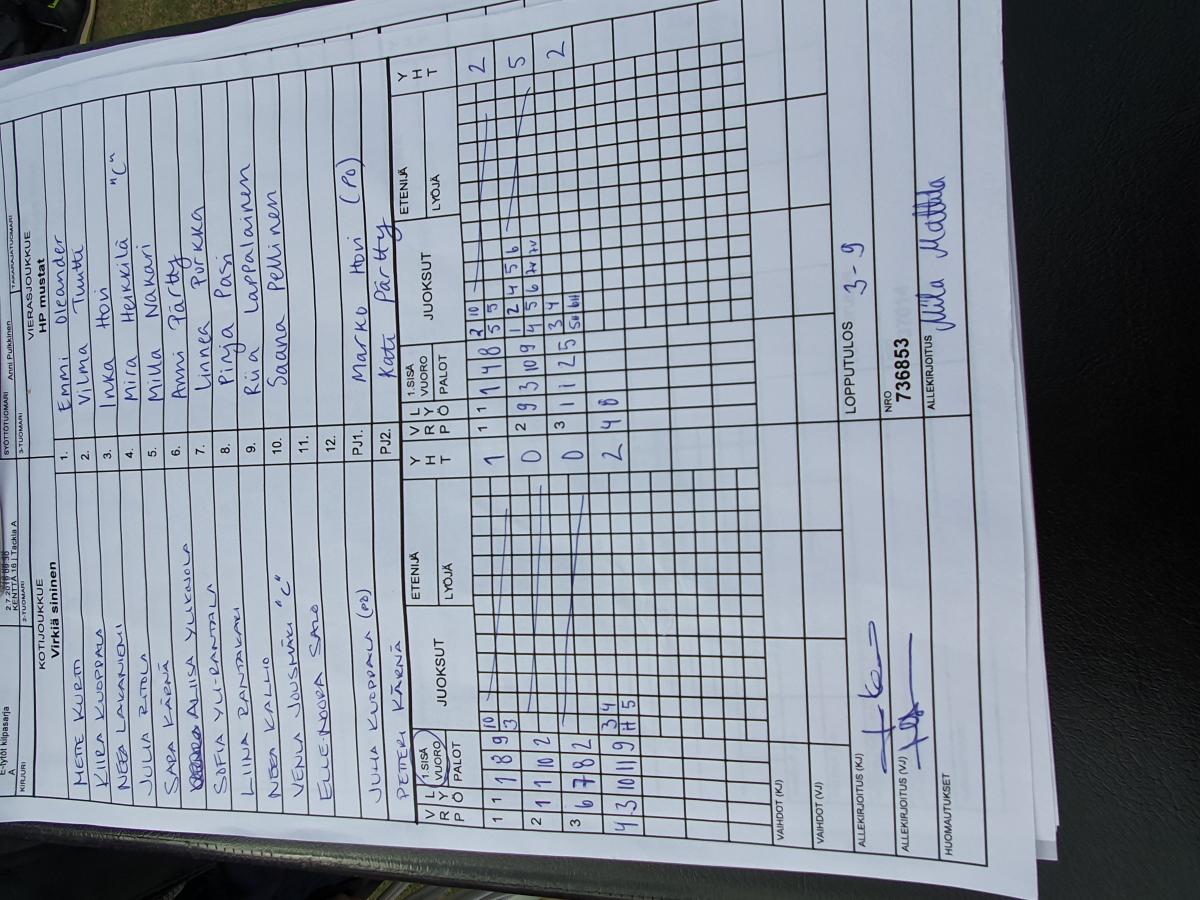 E-tytöt kilpasarja
A
KIRJURI
2.7.2019
KENTTÄ 16 | Tackla A
2-TUOMARI
SYÖTTÖTUOMARI
3-TUOMARI
Anni Pulkkinen
TAKARAJATUOMARI
KOTIJOUKKUE
Virkiä sininen
VIERASJOUKKUE
HP mustat
METTE KURTI 1. Emmi Oleander
KIIRA KUOPPALA 2. Vilma Tuutti
NEEA LAKANIEMI 3. Inka Hovi
JULIA RITOLA 4. Mira Heikkilä "C"
SARA KÄRNÄ 5. Milla Nakari
ALIISA YLIKOJOLA 6. Anni Pärtty
SOFIA YLI-RANTALA 7. Linnea Porkka
LIINA RANTAKARI 8. Pinja Pasi
NEEA KALLIO 9. Riia Lappalainen
VENLA JOUSMÄKI "C" 10. Saana Pellinen
ELLE-NOORA SALO 11.
12.
JUHA KUOPPALA (PO) PJ1. Marko Hovi (PO)
PETTERI KÄRNÄ PJ2. Kati Pärtty
V R P L Y Ö 1.SISÄ VUORO PALOT JUOKSUT ETENIJÄ LYÖJÄ Y H T V R P L Y Ö 1.SISÄ VUORO PALOT JUOKSUT ETENIJÄ LYÖJÄ Y H T
1 1 1 8 9 10 3 1 1 1 1 4 8 2 10 5 5 2
2 1 1 10 2 0 2 9 3 10 9 1 2 4 5 6 4 5 6 7V 7V 5
3 6 7 8 2 0 3 1 1 2 5 3 4 5H 6H 2
4. 3 10 11 9 3 4 H 5 2 4 8
VAIHDOT (KJ)
VAIHDOT (VJ)
ALLEKIRJOITUS (KJ) LOPPUTULOS 3-9
ALLEKIRJOITUS (VJ) NRO 736853
HUOMAUTUKSET ALLEKIRJOITUS Miila Mattila